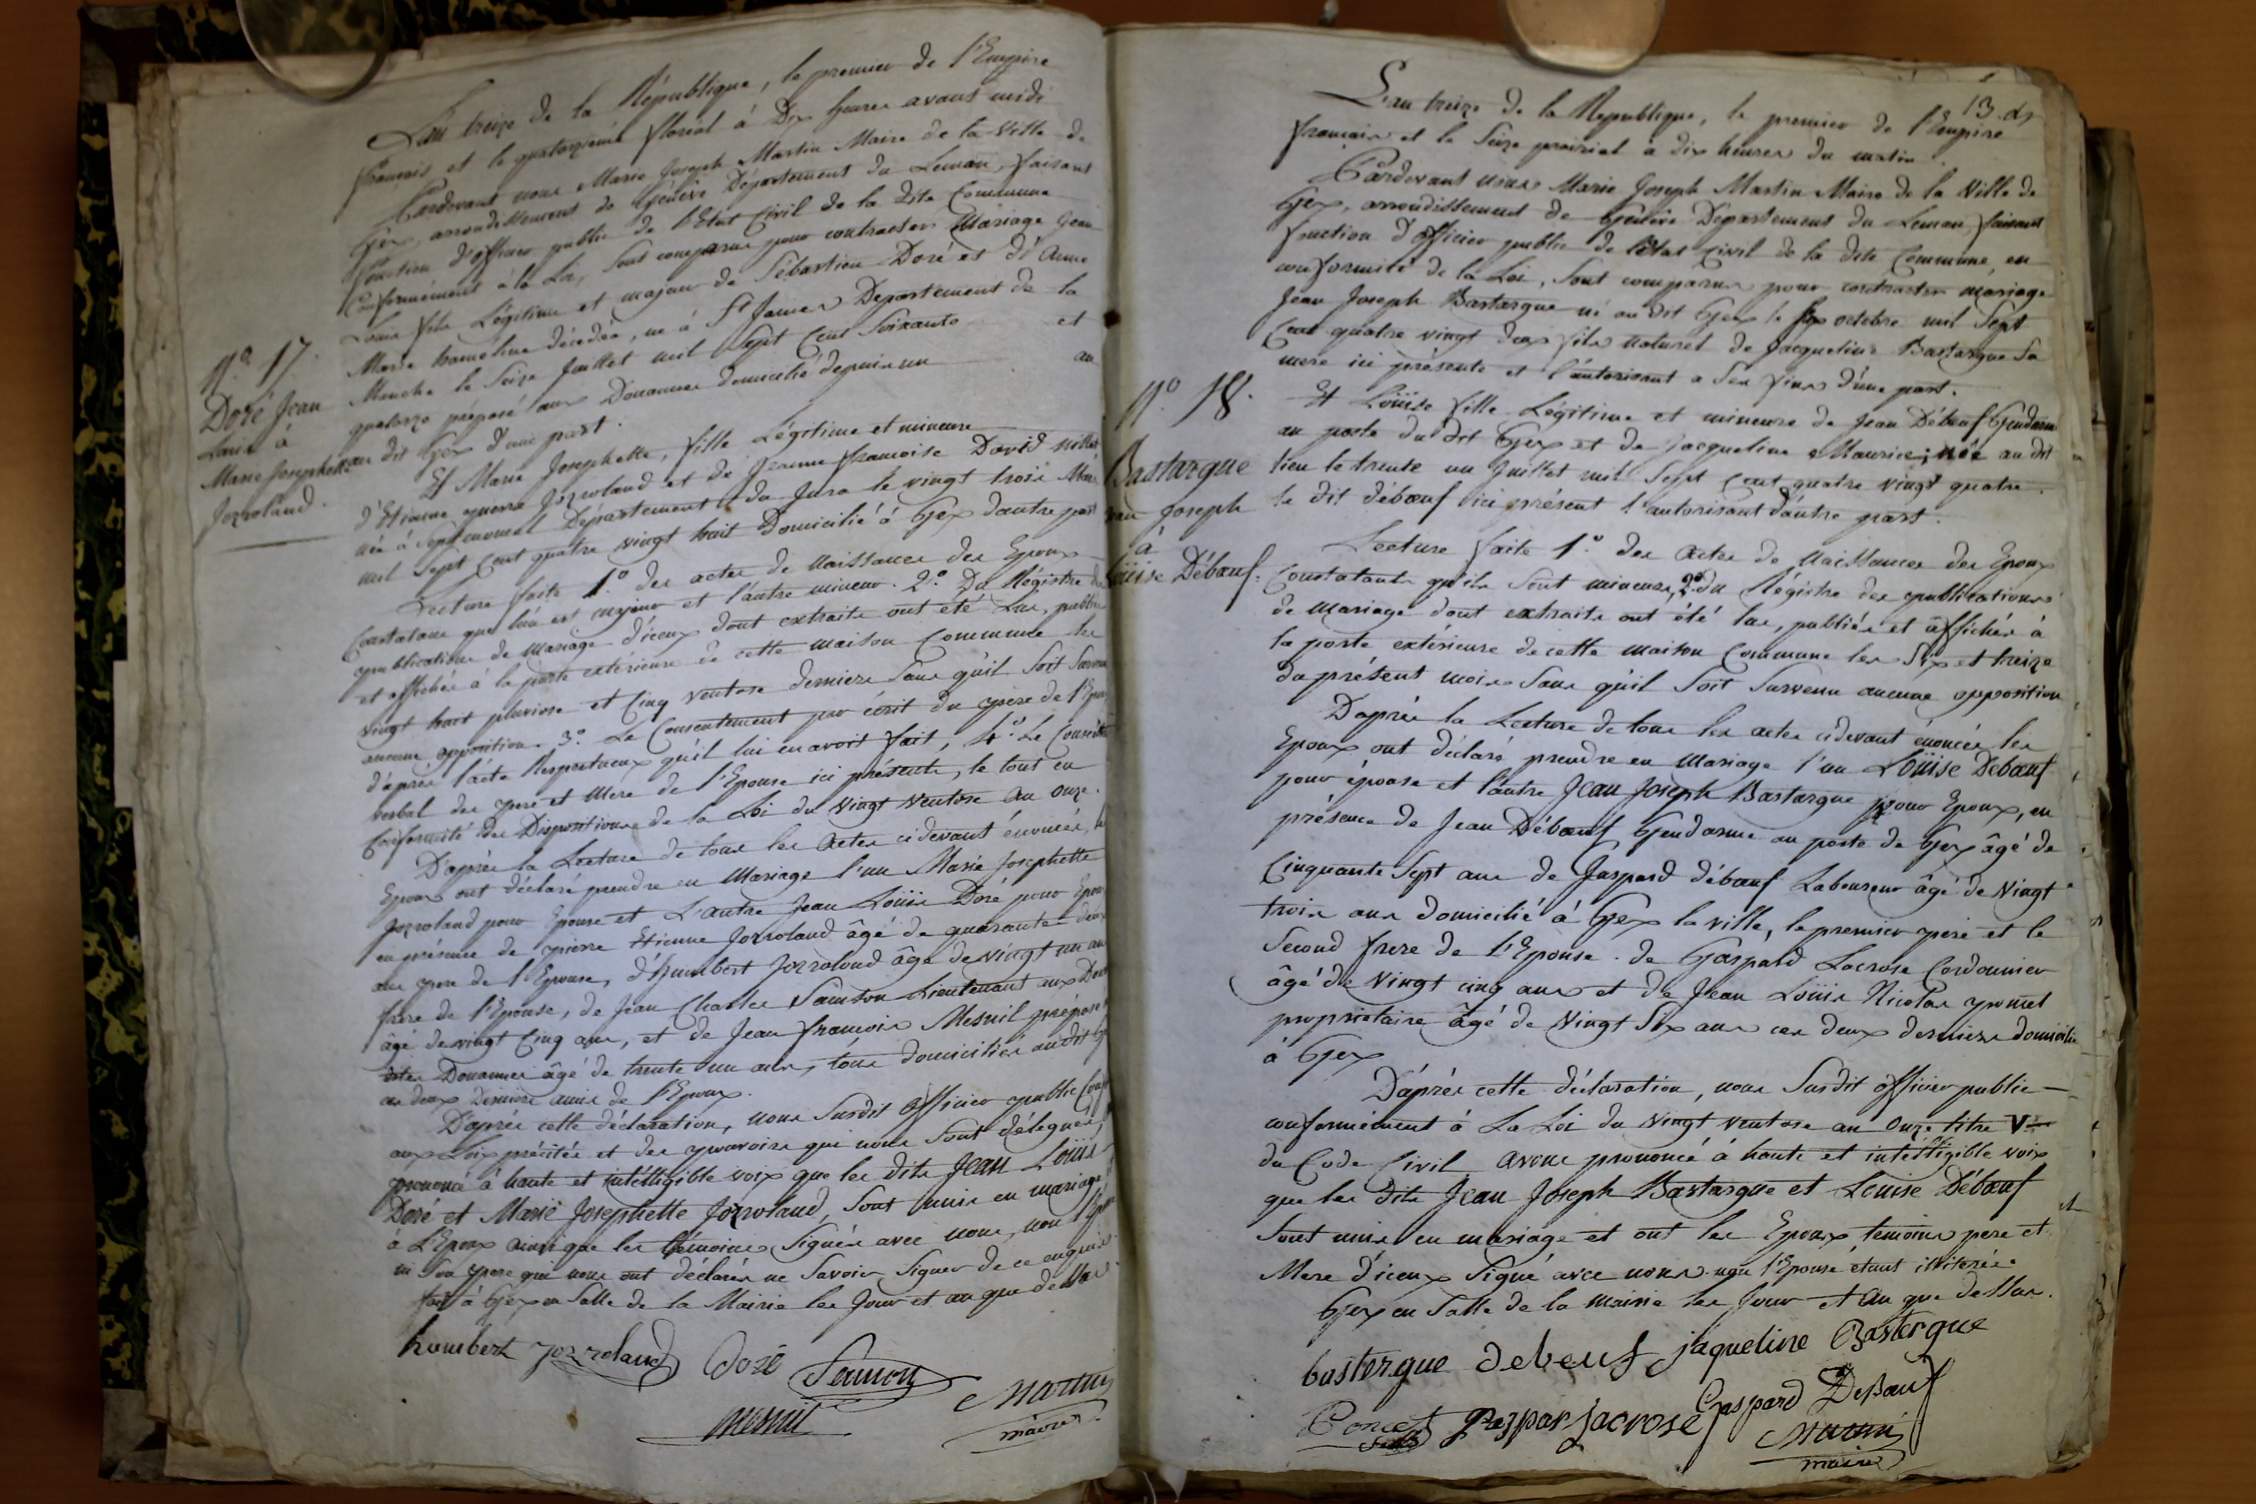 L'an treize de la République, le premier de l'Empire
français et le quatorzième floréal à Dix heures avant midi
Pardevant nous Marie Joseph Martin Maire de la Ville de
Gex, arrondissement de Genève Département du Leman, faisant
fonction d'officier public de l'Etat Civil de la dite Commune
Conformément à la Loi, sont comparus pour contracter Mariage Jean
Louis fils Légitime et majeur de Sébastien Doré et de Anne
Marie décédée, né à St James Departement de la
Manche le Seize Juillet mil Sept Cent Soixante et
quatorze préposé aux Douanes domicilié depuis un an
au dit Gex d'une part.
Et Marie Josephette, fille Légitime et mineure
d'Etienne pierre Jozroland et de françoise David
née à Septmoncel Département du Jura le vingt trois
mil Sept Cent quatre vingt huit Domicilié à Gex d'autre part
Lecture faite 1.° des actes de Naissances des Epoux
Constatant que l'un est majeur et l'autre mineur. 2.° Du Régistre de
publications de Mariage d'iceux dont extraits ont été Lus, publiés
et affichés à la porte extérieure de cette maison Commune les
vingt huit pluviose et Cinq ventose derniers Sans qu'il Soit Survenu
aucune opposition. 3.° Le Consentement par écrit du père de l'Epoux
d'après l'acte Respectueux qu'il lui en avoit fait, 4.° Le Consentement
verbal des pere et Mere de l'Epouse ici présents, le tout en
Conformité des Dispositions de la Loi du Vingt Ventose An onze.
D'après la Lecture de tous les Actes cidevant énoncés, les
Epoux ont déclaré prendre en Mariage l'un Marie Josephette
Jozroland pour Epouse et L'autre Jean Louis Doré pour Epoux
en présence de pierre Etienne Jozroland âgé de quarante deux
ans pere de l'Epouse, d'humbert Jozroland âgé de vingt un ans
frère de l'Epouse, de Jean Charles Samson Lieutenant aux Douanes
agé de vingt Cinq ans, et de Jean françois Mesnil préposé
Douanes âgé de trente un ans, tous domiciliés audit Gex
ces deux Derniers amis de l'Epoux.
D'après cette déclaration, nous Susdit Officier public
aux Loix précitées et des pouvoirs qui nous Sont délégués,
prononcé à haute et intelligible voix que les dits Jean Louis
Doré et Marie Josephette Jozroland, Sont unis en mariage
à L'Epoux ainsi que les témoins Signés avec nous, non l'Epouse
ni Son pere qui nous ont déclarés ne Savoir Signer de ce enquis
fait à Gex en Salle de la Mairie les Jour et an que dessus
humbert jozroland Doré Samson
mesnil Martin
maire
N.° 17.
Doré Jean
Louis à
Marie Josephette
Jozroland.
13
L'an treize de la Republique, le premier de l'Empire
français et le Seize prairial à dix heures du matin
Pardevant nous Marie Joseph Martin Maire de la Ville de
Gex, arrondissement de Genève Departement du Leman faisant
fonction d'officier public de l'état Civil de la dite Commune, en
conformité de la Loi, sont comparus pour contracter mariage
Jean Joseph Bastargue né au dit Gex le octobre mil Sept
Cent quatre vingt deux fils naturel de Jacqueline Bastargue Sa
mere ici présente et l'autorisant a Ses fins d'une part.
Et Loüise fille Légitime et mineure de Jean Débœuf Gendarme
au poste du dit Gex et de jacqueline Maurice; née au dit
lieu le trente un Juillet mil Sept Cent quatre vingt quatre.
le dit débœuf ici présent l'autorisant d'autre part.
Lecture faite 1.° des Actes de Naissances des Epoux
Constatant qu'ils Sont mineurs, 2.° du Régistre des publications
de Mariage dont extraits ont été lus, publiés et affichés à
la porte extérieure de cette maison Commune les Six et treize
du présent mois Sans qu'il Soit Survenu aucune opposition
D'après la Lecture de tous les actes cidevant énoncés les
Epoux ont déclaré prendre en Mariage l'un Loüise Débœuf
pour épouse et l'autre Jean Joseph Bastargue pour Epoux, en
présence de Jean Débœuf Gendarme au poste de Gex âgé de
Cinquante Sept ans de Jaspard débœuf Laboureur âgé de Vingt
trois ans domicilié à Gex la ville, le premier pere et le
Second frere de l'Epouse. de Gaspard Lacrose Cordonnier
âgé de Vingt cinq ans et de Jean Loüis Nicolas
propriétaire âgé de Vingt Six ans ces deux derniers domicilié
à Gex
D'après cette déclaration, nous Susdit officier public
conformément à La Loi du vingt ventose an Onze titre V
du Code Civil avons prononcé à haute et intélligible voix
que les dits Jean Joseph Bastargue et Louise Débœuf
Sont unis en mariage et ont les Epoux témoins pere et
Mere d'iceux Signé avec nous non l'Epouse étant illitérée
Gex en Salle de la Mairie les Jour et An que dessus.
bastergue debeuf jaqueline Bastergue
Poncet Gaspar jacrose Gaspard DeBœuf
Martin
maire
N.° 18.
Bastargue
Jean Joseph
à
Loüise Débœuf.